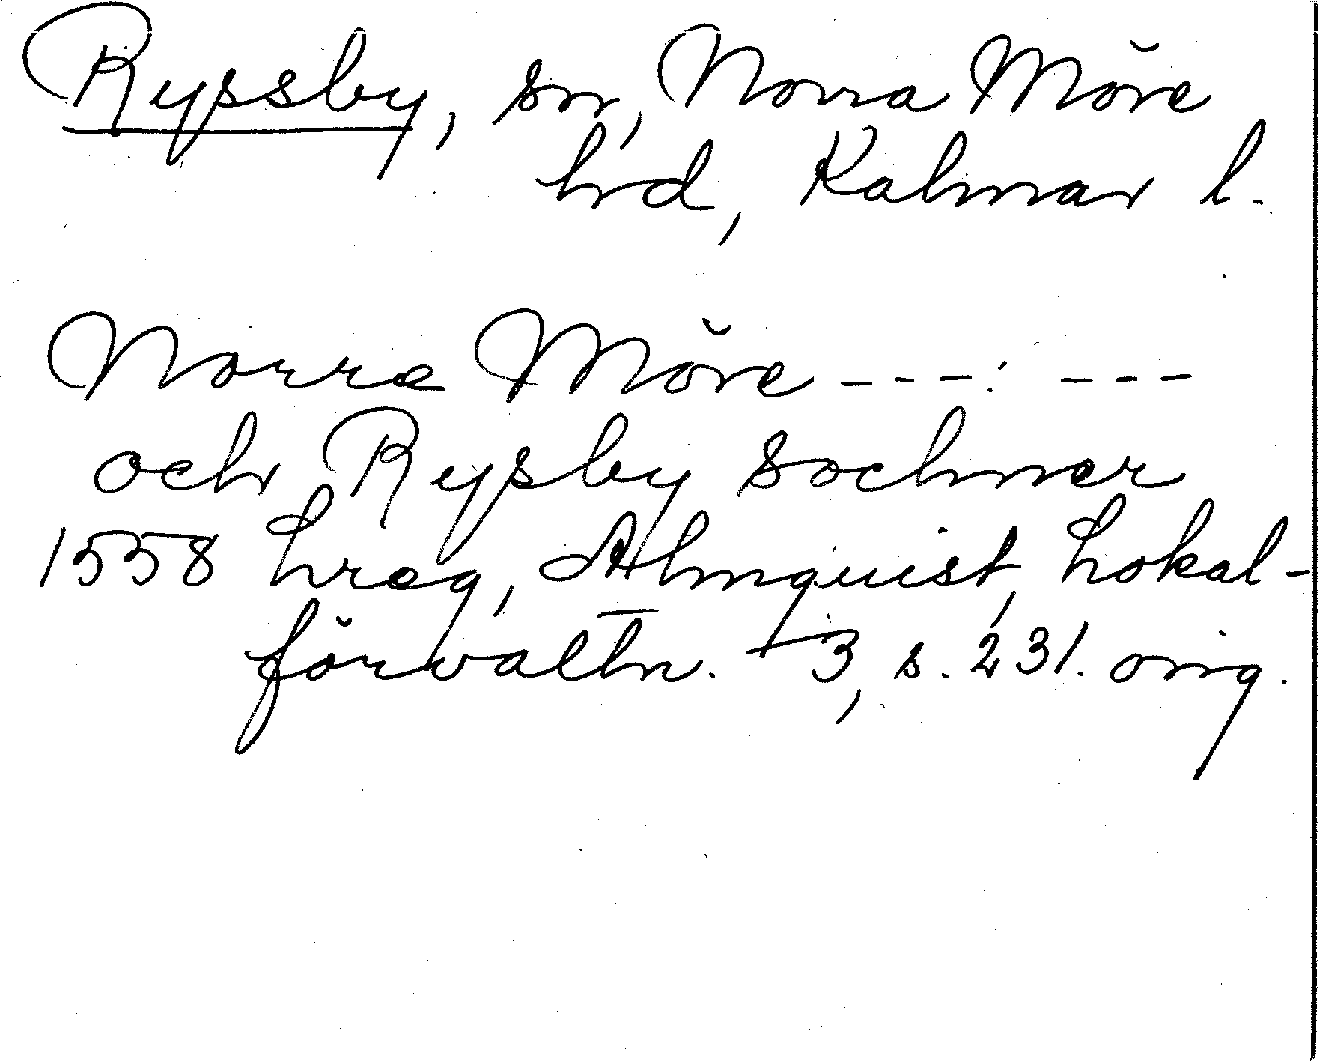 Ryssby, sn, Norra Möre
hd, Kalmar l.
Norra Möre ---: ---
och Rysby sochner
1558 hreg, Almquist, Lokal-
förvaltn. 3, s. 231. orig.